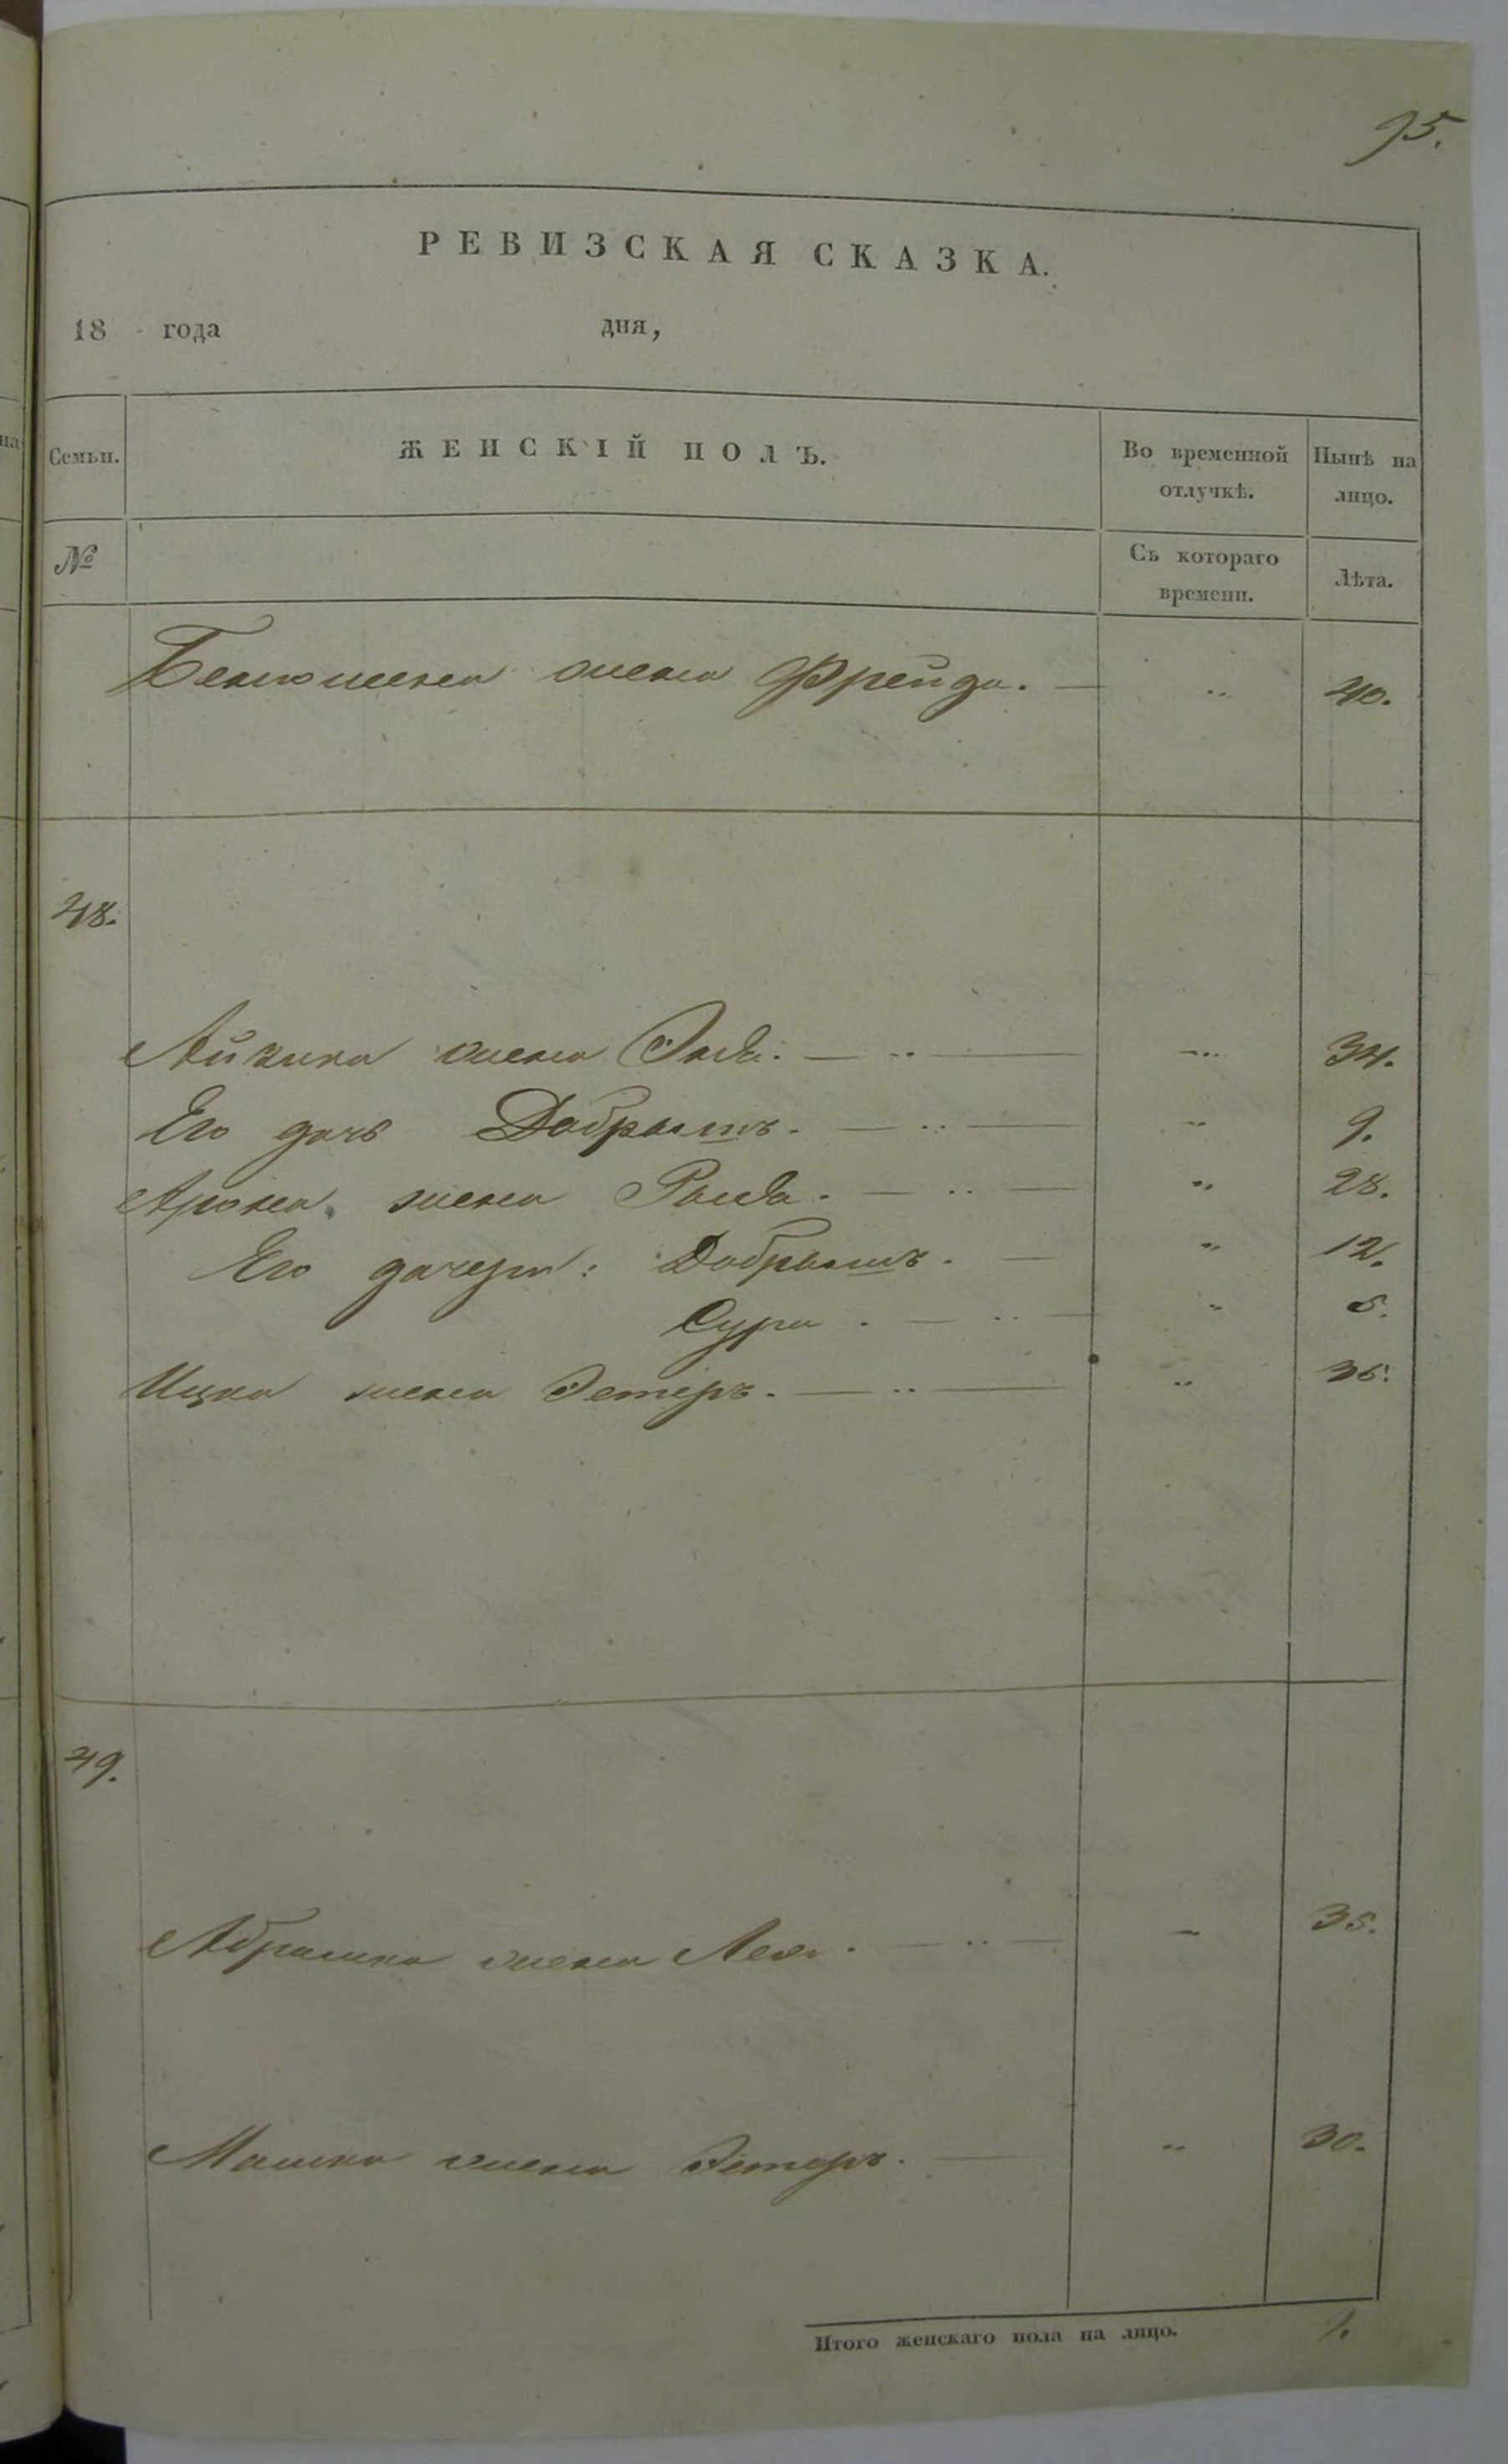 95.
РЕВИЗСКАЯ СКАЗКА.
18 года дня,
Семьи. ЖЕНСКІЙ ПОЛЪ. Во временной отлучкѣ. Нынѣ на лицо.
№ Съ котораго времени. Лѣта.
жена Фрейда. — „ 40.
48.
жена — „ — „ 34.
Его дочь Добрышъ. — „ — „ 9.
Арона жена — „ — „ 28.
Его дочери: Добрышъ. — „ 12.
Сура. — „ — „
Ицка жена Эстеръ. — „ — „ 36.
49.
Абрамка жена Лея. — „ — 35.
жена Эстеръ. — „ 30.
Итого женскаго пола на лицо.